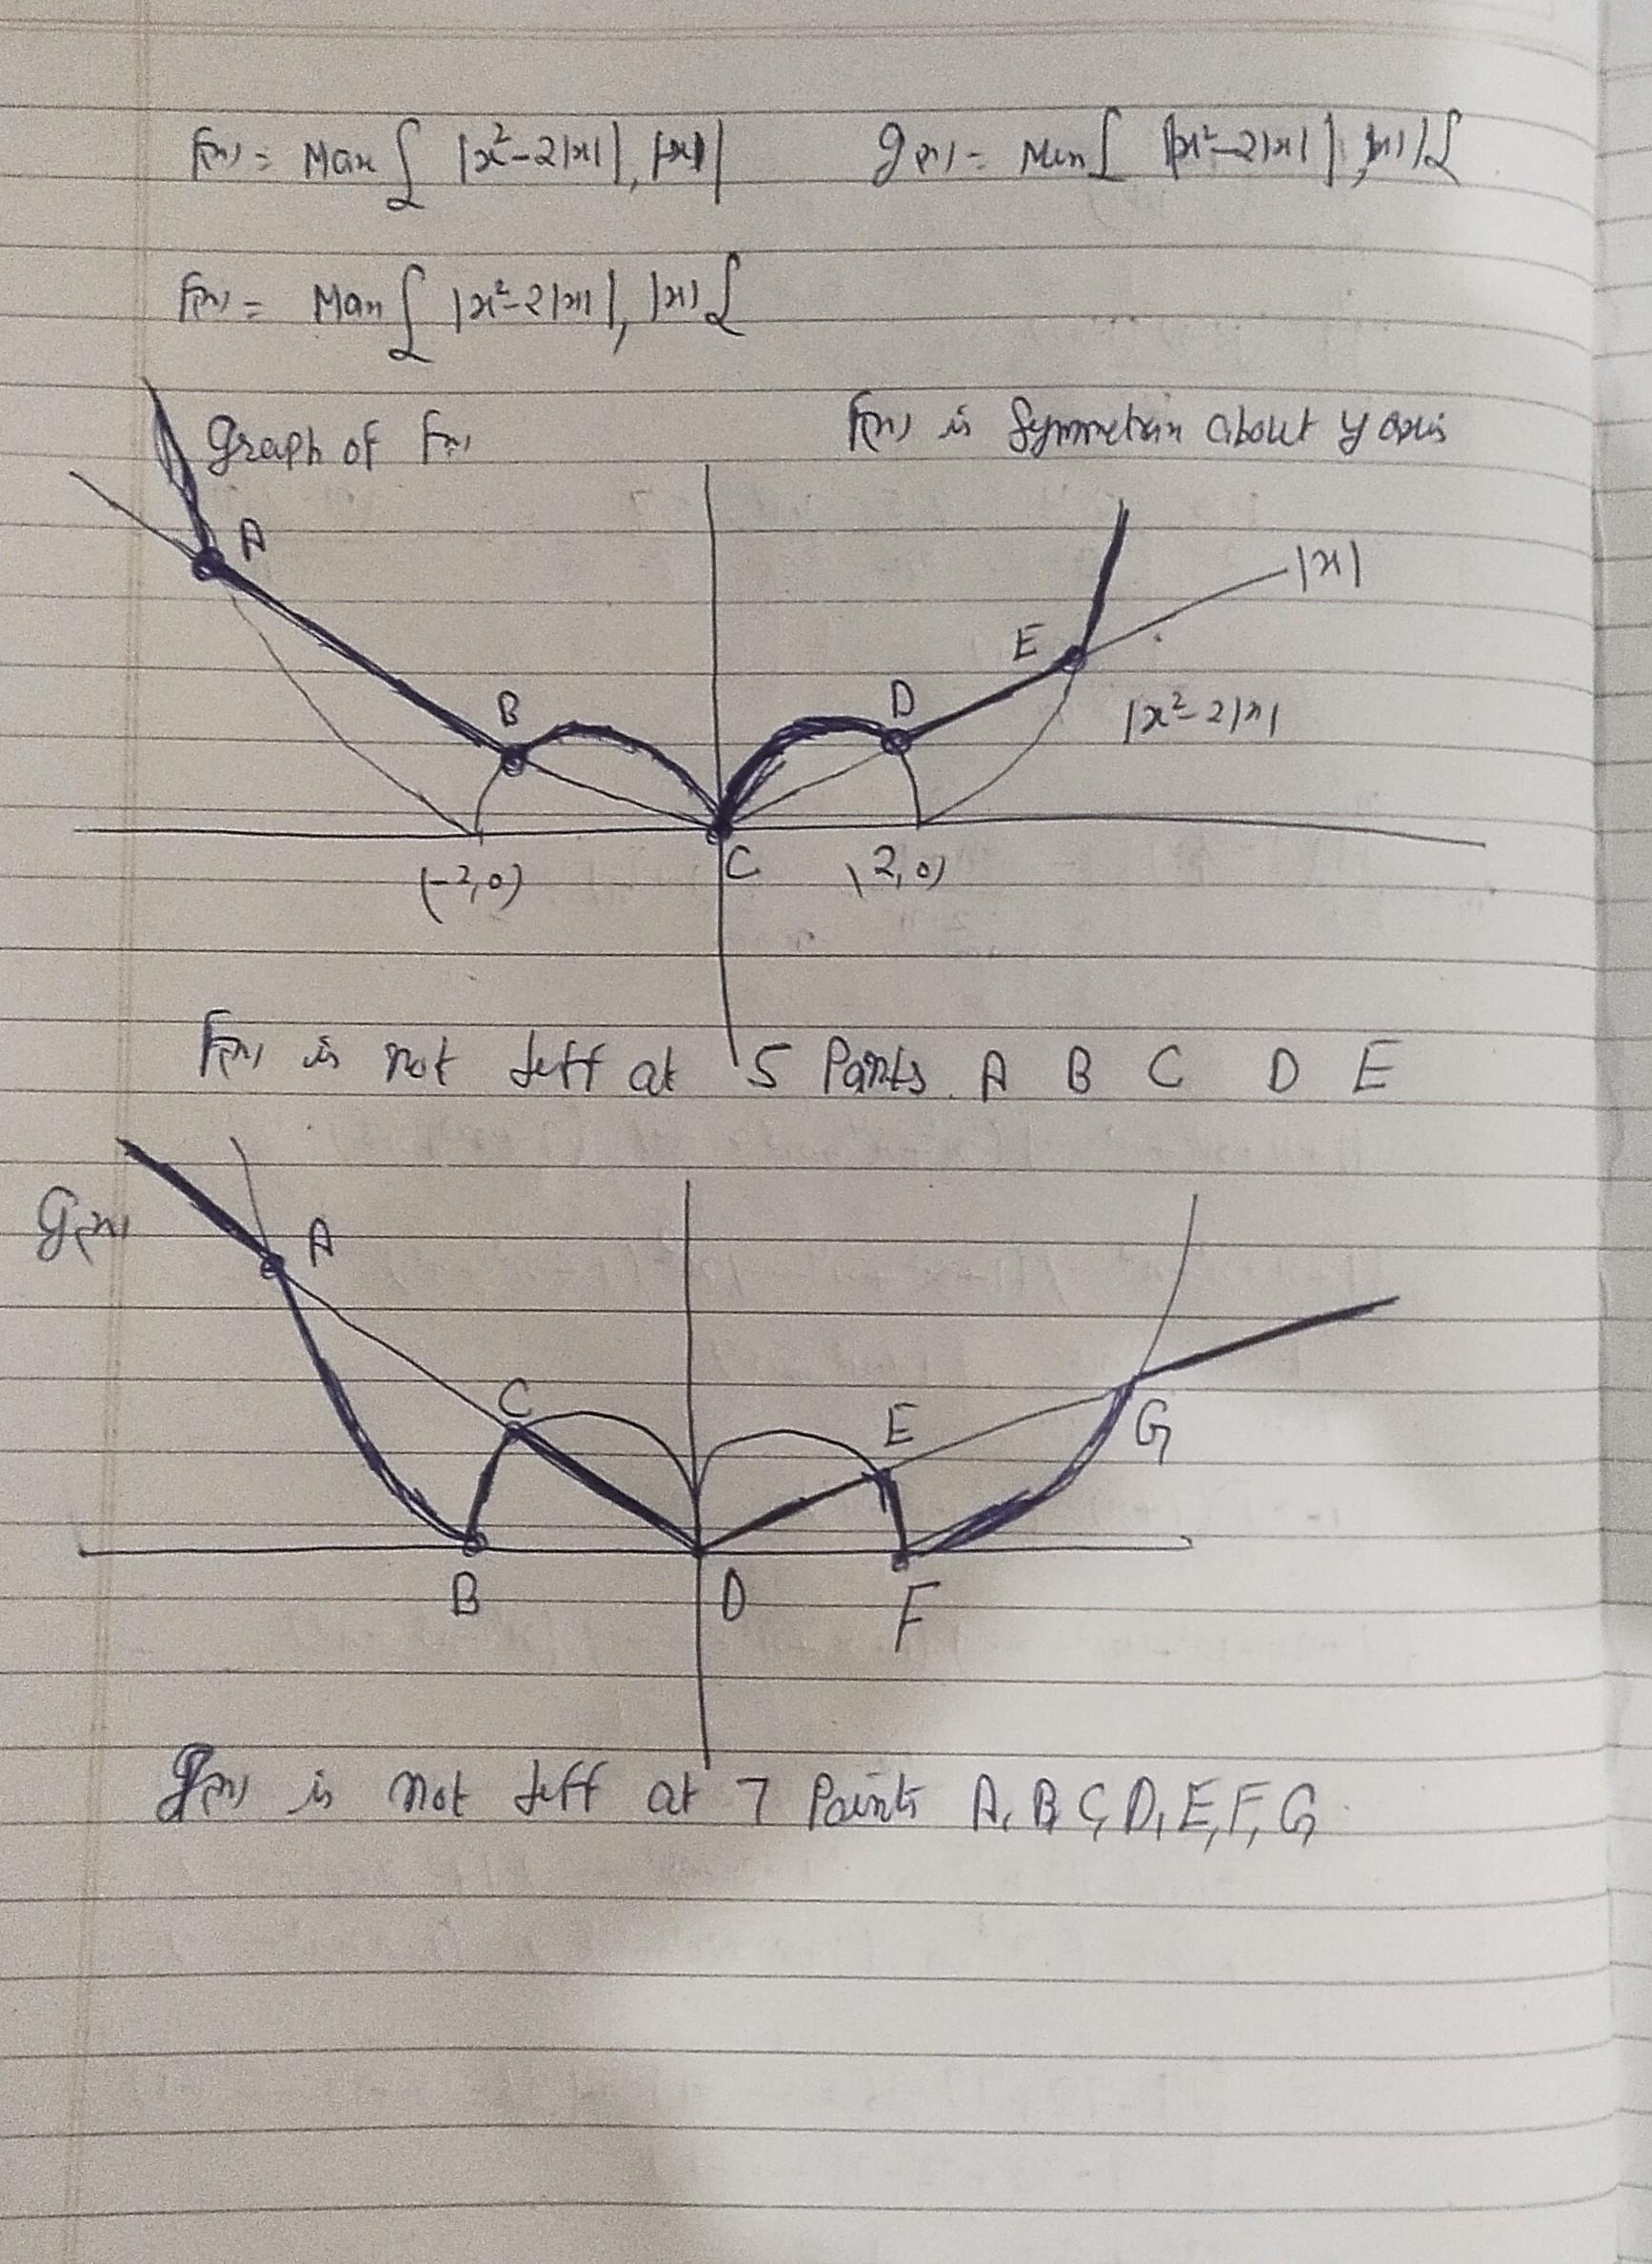 F(x) = Max { |x²-2|x||, |x| | g(x) = Min { |x²-2|x||, |x| }
F(x) = Max { |x²-2|x||, |x| }
Graph of F(x) F(x) is Symmetric about y axis
A
|x|
E
B D |x²-2|x|
C
(-2,0) (2,0)
F(x) is not diff at 5 Points. A B C D E
G(x) A
C E G
B D F
g(x) is not diff at 7 Points A, B, C, D, E, F, G